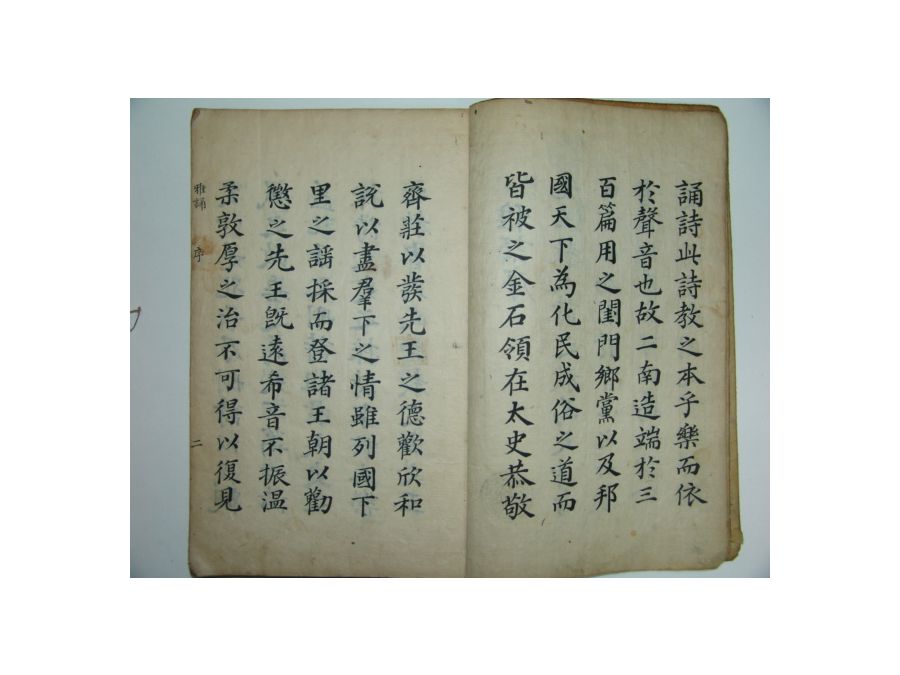 誦詩此詩教之本乎樂而依
於聲音也故二南造端於三
百篇用之閨門鄉黨以及邦
國天下為化民成俗之道而
皆被之金石領在太史恭敬
齊莊以發先王之德歡欣和
說以盡羣下之情雖列國下
里之謠採而登諸王朝以勸
懲之先王旣遠希音不振溫
柔敦厚之治不可得以復見
雅誦 序 二